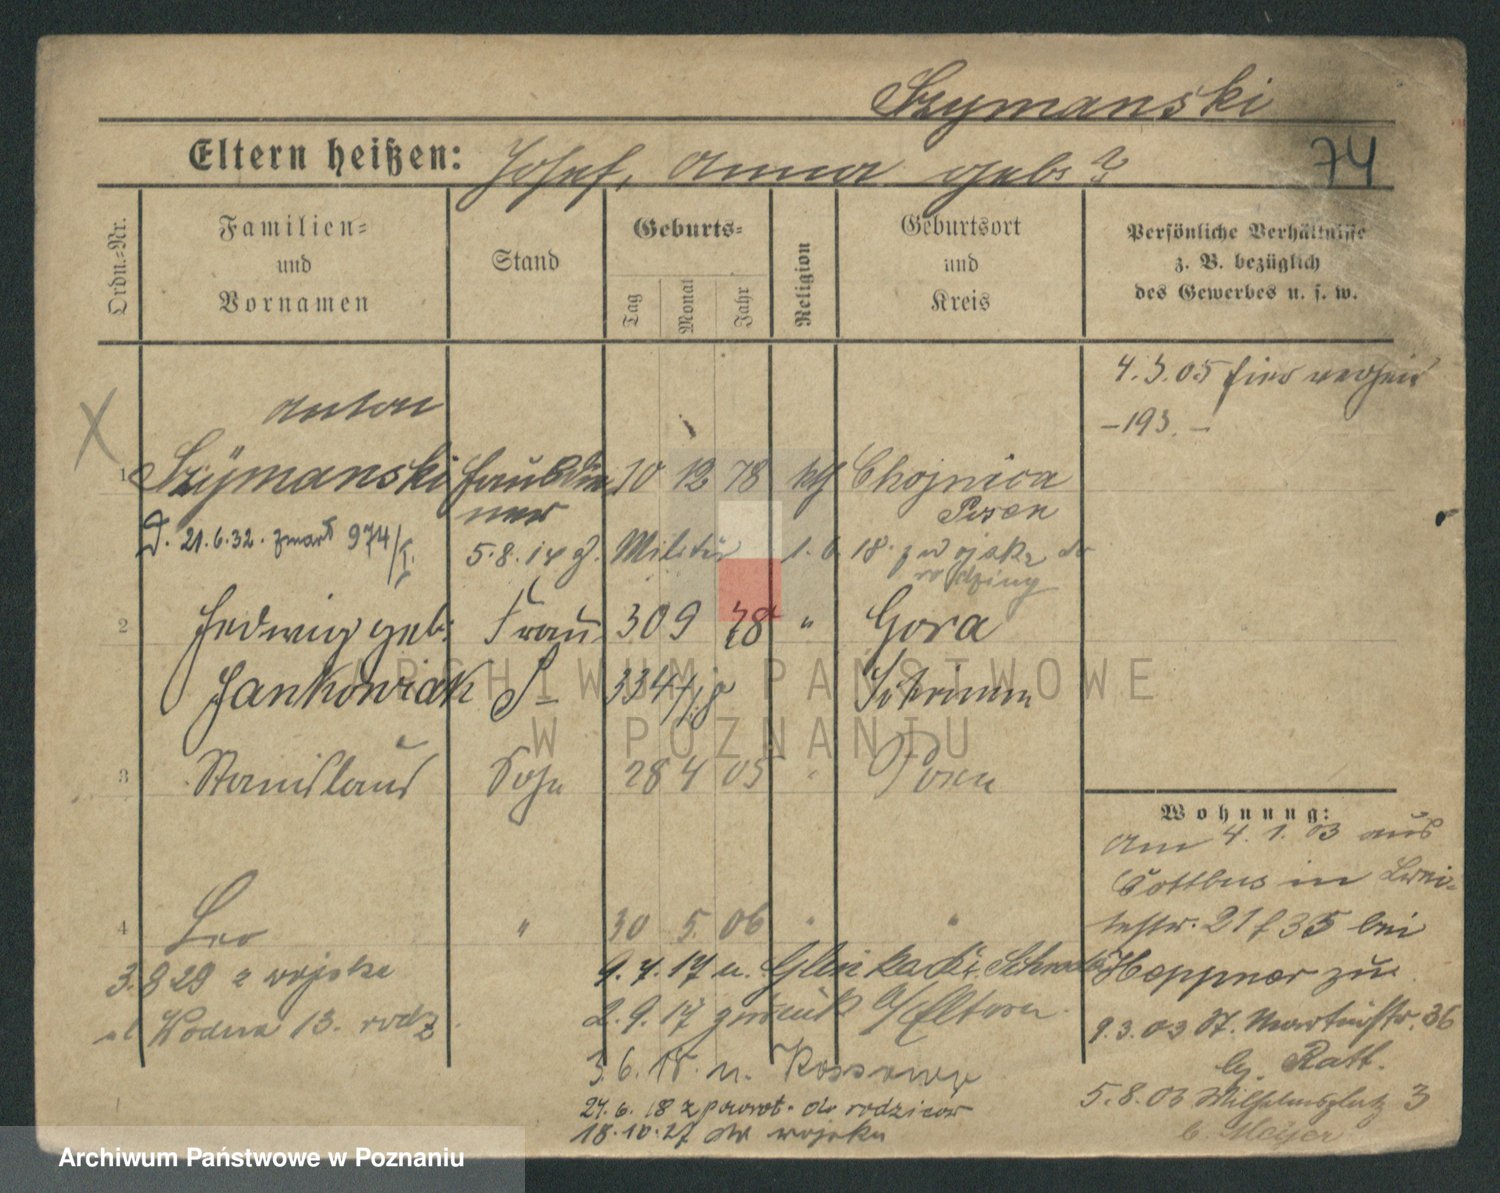 Szymanski
Eltern heißen: Josef, Anna geb. ?
74
Ordn.-Nr.
Familien=
und
Vornamen
Stand
Geburts=
Tag
Monat
Jahr
Religion
Geburtsort
und
Kreis
Persönliche Verhältnisse
z. B. bezüglich
des Gewerbes u. s. w.
4.3.05 hier
-193.-
Anton
1 Szÿmanski Hausdie 10 12 78 kth Chojnica
ner Posen
D. 21.6.32. zmarł 974/I.
5.8.14 z. Militär 1.6.18. z wojska do
rodziny
2 Hedwig geb. Frau 30 9 78 " Gora
Jankowiak S- 334/ Schrimm
3 Stanislaus Sohn 28 4 05 " Posen
4 Leo " 30 5. 06 " "
3.9 29 z wojska
ul Wodna 13. rodz.
9.4.17 n.
2.9.17 zurück a/Eltern.
3.6.18. n.
27.6.18 z powrot. do rodziców
18.10.27 do wojska
Wohnung:
Am 4.1.03 aus
Cottbus in Brei-
testr. 21 f 35 bei
Hoeppner zu.
9.3.03 St. Martinstr. 36
b. Ratt.
5.8.03 Wilhelmsplatz 3
b. Meijer
ARCHIWUM PAŃSTWOWE
W POZNANIU
Archiwum Państwowe w Poznaniu